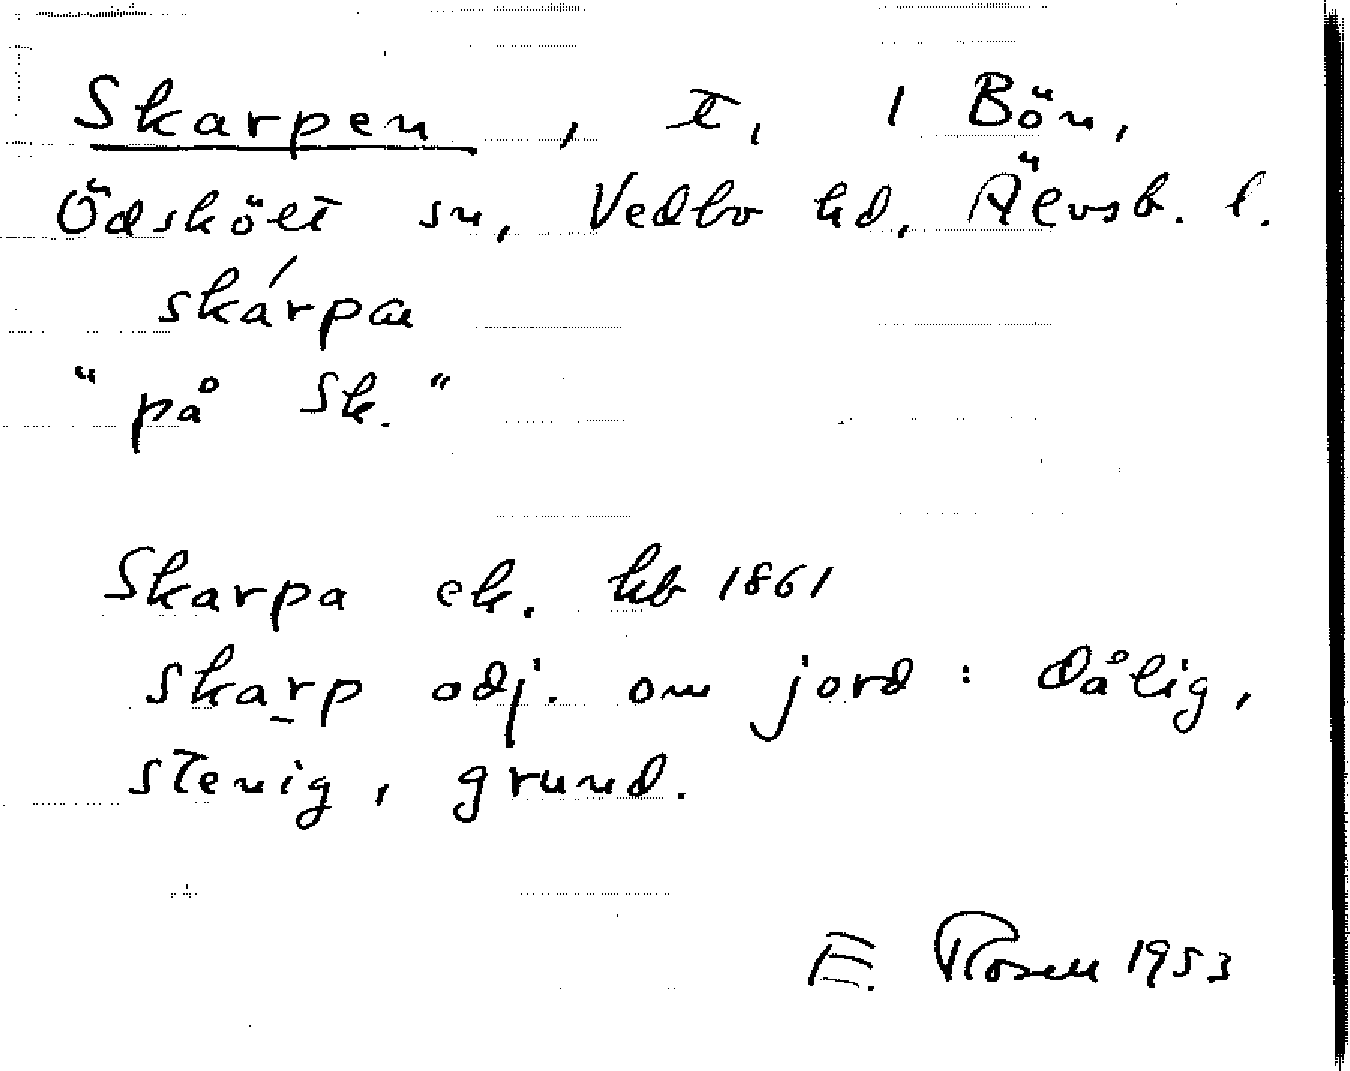 Skarpen, t, 1 Bön,
Ödskölt sn, Vedbo hd, Älvsb. l.
skárpan
"på Sk."
Skarpa ek. kb 1861
skarp adj. om jord: dålig,
stenig, grund.
E. Rosell 1953